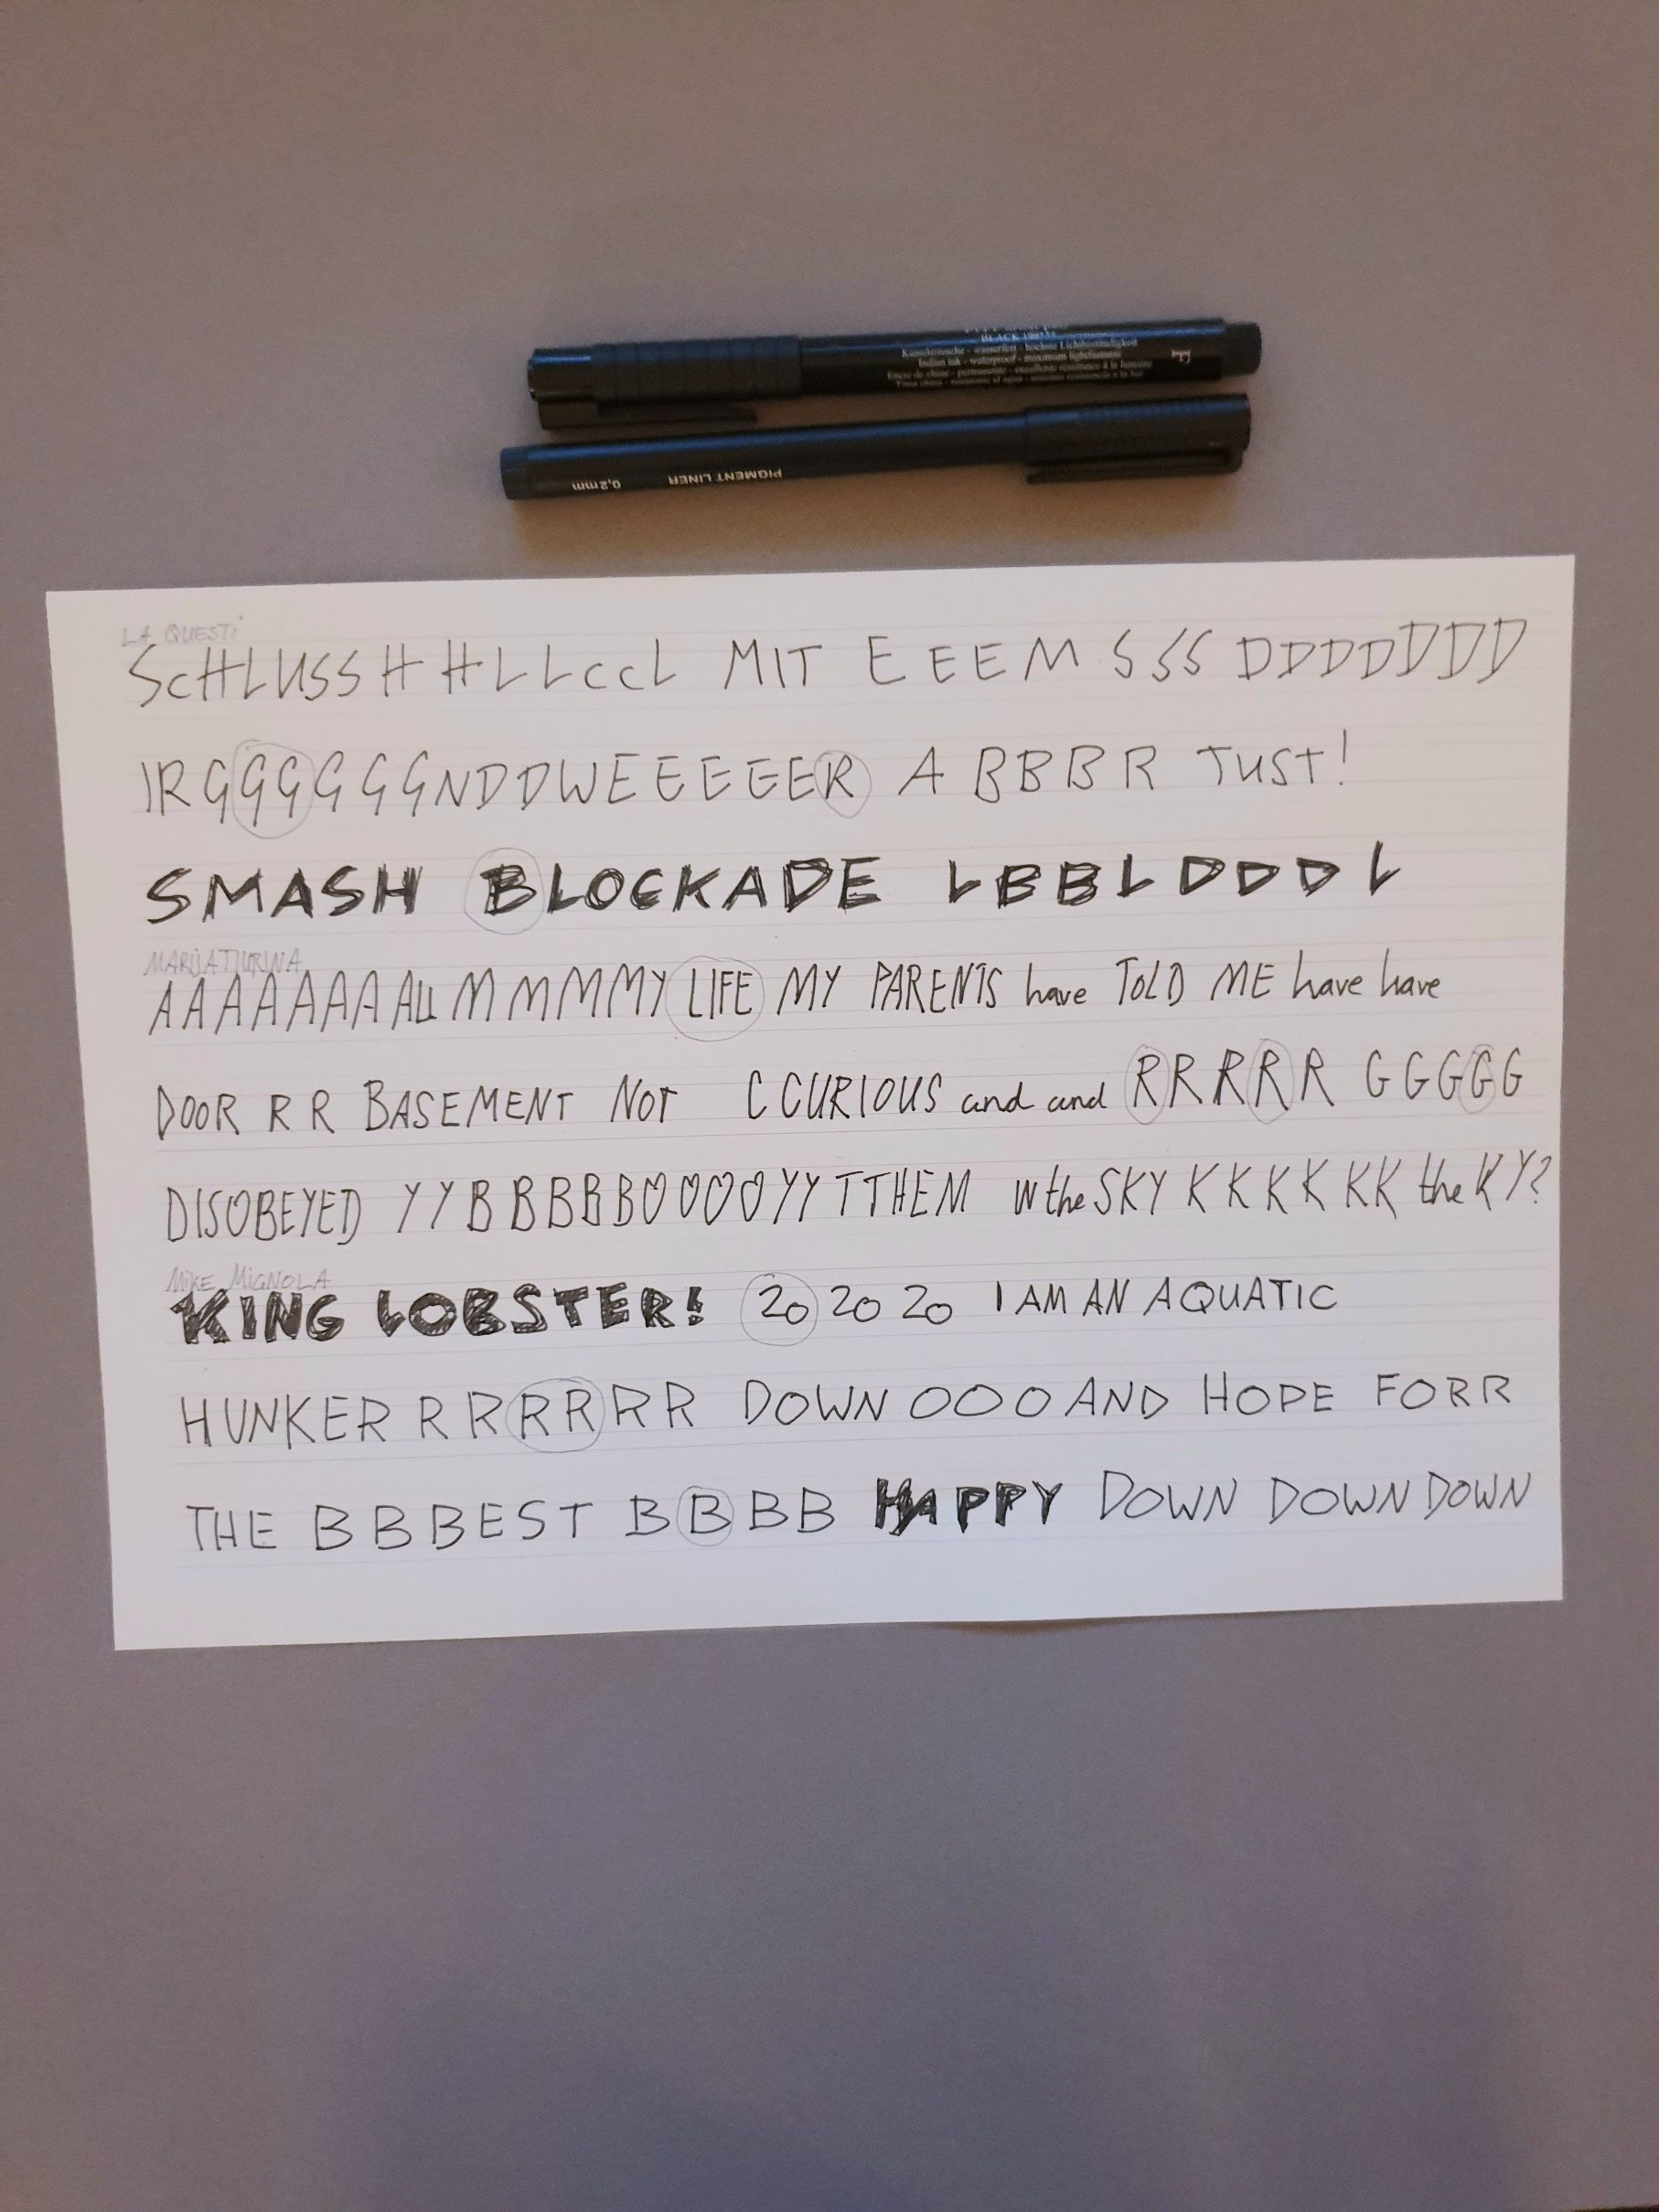 BLACK
Künstlertusche - wasserfest - höchste Lichtbeständigkeit
Indian ink - waterproof - maximum lightfastness
Encre de chine - permanente - excellente résistance à la lumière
F
PIGMENT LINER 0,2mm
LA QUESTi
SCHLUSS H H L L c c L MIT E E E M S S S D D D D D D D
IR G G G G G G N D D W E E E E E R A B B B R TUST!
SMASH BLOCKADE L B B L D D D L
MARIJA TIURINA
A A A A A A A ALL M M M MY LIFE MY PARENTS have TOLD ME have have
DOOR R R BASEMENT NOT C CURIOUS and and R R R R R G G G G G
DISOBEYED Y Y B B B B B O O O O Y Y T THEM W the SKY K K K K K K the K Y?
MiKE MiGNOLA
KING LOBSTER! 20 20 20 I AM AN AQUATIC
HUNKER R R R R R R DOWN O O O AND HOPE FOR R
THE B B BEST B B B B HAPPY DOWN DOWN DOWN